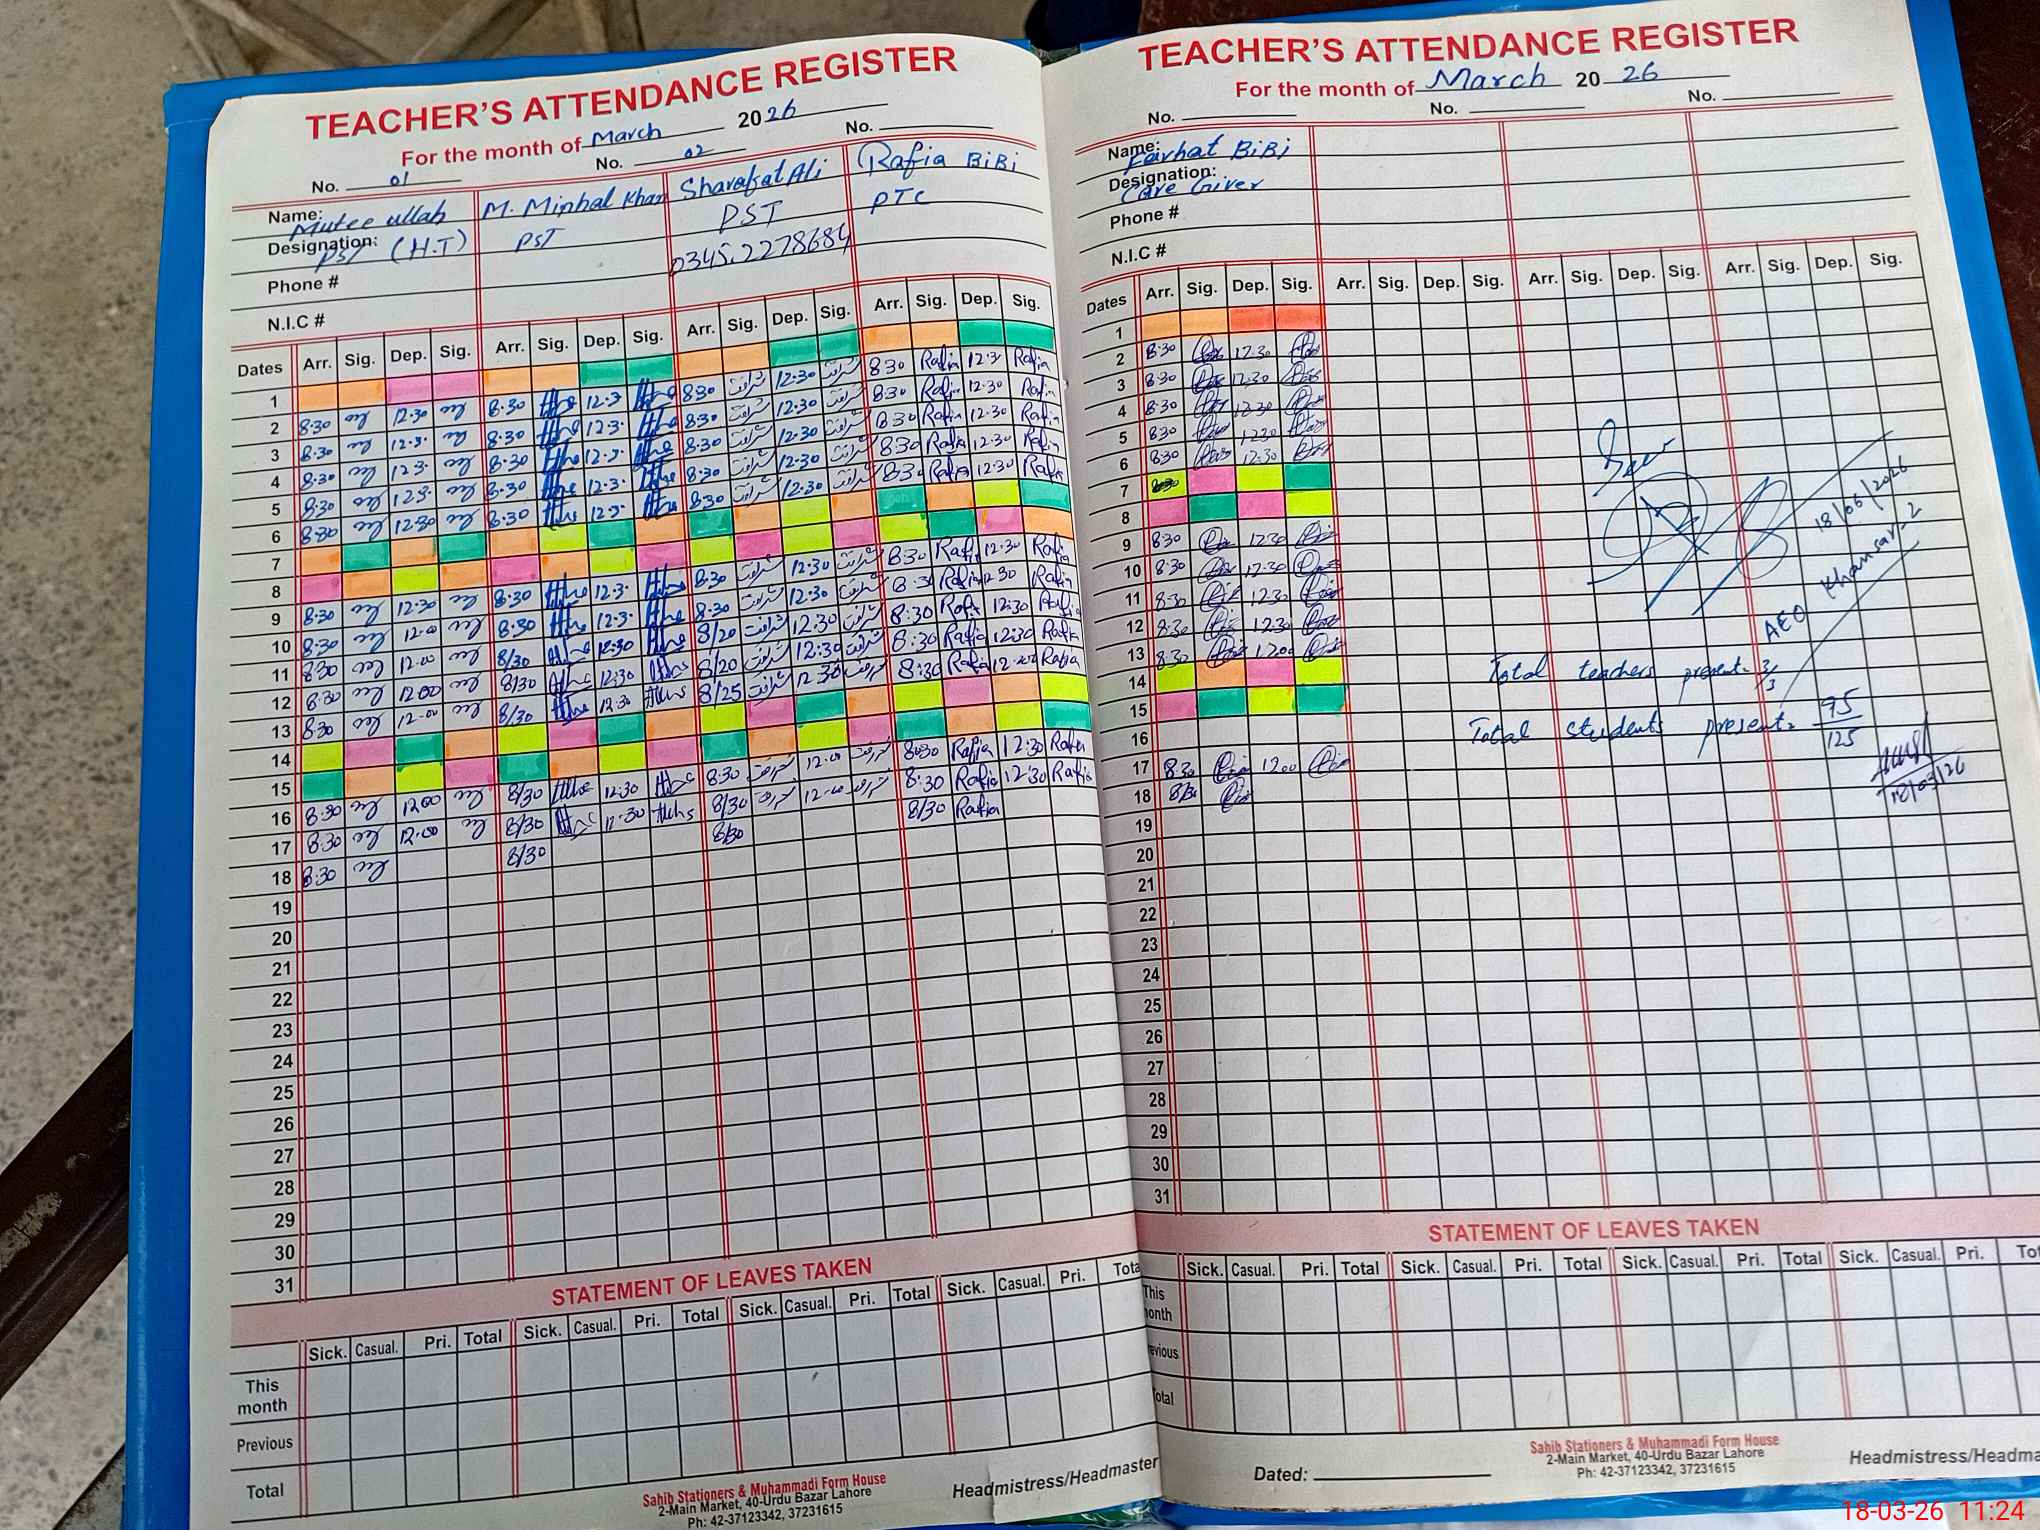 TEACHER'S ATTENDANCE REGISTER
For the month of March 2026
No. 01 No. 02 No.
Name: Mutee ullah M. Minhal Khan Sharafat Ali Rafia BiBi
Designation: PST (H.T) PST PST PTC
Phone # 0345.2278684
N.I.C #
Dates Arr. Sig. Dep. Sig. Arr. Sig. Dep. Sig. Arr. Sig. Dep. Sig. Arr. Sig. Dep. Sig.
1
2 8:30 12:30 8:30 12:3. 8:30 شرافت 12:30 شرافت 830 Rafia 12:3 Rafia
3 8:30 12:3. 8:30 12:3. 8:30 شرافت 12:30 شرافت 830 Rafia 12:30 Rafia
4 8:30 123. 8:30 12:3. 8:30 شرافت 12:30 شرافت 830 Rafia 12:30 Rafia
5 8:30 123. 8:30 12:3. 8:30 شرافت 12:30 شرافت 830 Rafia 12:30 Rafia
6 8:30 12:30 8:30 12:3. 8:30 شرافت 12:30 شرافت 8:30 Rafia 12:30 Rafia
7
8
9 8:30 12:30 8:30 12:3. 8:30 شرافت 12:30 شرافت 830 Rafia 12:30 Rafia
10 8:30 12:00 8:30 12:3. 8:30 شرافت 12:30 شرافت 8:30 Rafia 12:30 Rafia
11 8:30 12:00 8/30 12:30 8/20 شرافت 12:30 شرافت 8:30 Rafia 12:30 Rafia
12 8:30 1200 8/30 12:30 8/20 شرافت 12:30 شرافت 8:30 Rafia 12:30 Rafia
13 8:30 12:00 8/30 12:30 8/25 شرافت 12:30 شرافت 8:30 Rafia Rafia
14
15
16 8:30 1200 8/30 12:30 8:30 شرافت 12:00 شرافت 8:30 Rafia 12:30 Rafia
17 8:30 12:00 8/30 12:30 8/30 شرافت 12:00 شرافت 8:30 Rafia 12:30 Rafia
18 8:30 8/30 8/30 8/30 Rafia
19
20
21
22
23
24
25
26
27
28
29
30
31
STATEMENT OF LEAVES TAKEN
Sick. Casual. Pri. Total Sick. Casual. Pri. Total Sick. Casual. Pri. Total Sick. Casual. Pri. Tota
This month
Previous
Total
Sahib Stationers & Muhammadi Form House
2-Main Market, 40-Urdu Bazar Lahore
Ph: 42-37123342, 37231615
Headmistress/Headmaster
TEACHER'S ATTENDANCE REGISTER
For the month of March 2026
No. No. No.
Name: Farhat BiBi
Designation: Care Giver
Phone #
N.I.C #
Dates Arr. Sig. Dep. Sig. Arr. Sig. Dep. Sig. Arr. Sig. Dep. Sig. Arr. Sig. Dep. Sig.
1
2 8:30 12:30
3 8:30 12:30
4 8:30 12:30
5 830 1230
6 830 12:30
7
8
9 8:30 12:30
10 8:30 12:30
11 8:30 12:30
12 8:30 12:30
13 8:30
14
15
16
17 830 1200
18 8/30
19
20
21
22
23
24
25
26
27
28
29
30
31
AEO Khansar-2
Total teachers present- 3/3
Total students present- 95/125
18/03/26
STATEMENT OF LEAVES TAKEN
Sick. Casual. Pri. Total Sick. Casual. Pri. Total Sick. Casual. Pri. Total Sick. Casual. Pri. To
This
onth
evious
otal
Sahib Stationers & Muhammadi Form House
2-Main Market, 40-Urdu Bazar Lahore
Ph: 42-37123342, 37231615
Dated:
Headmistress/Headma
18-03-26 11:24